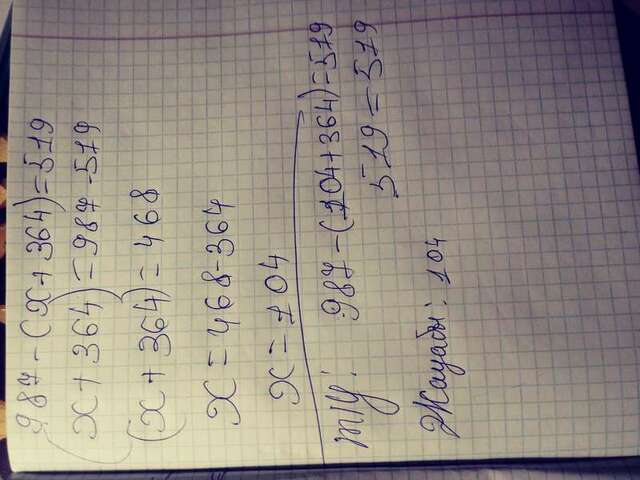 987 - (x + 364) = 519
(x + 364) = 987 - 519
(x + 364) = 468
x = 468 - 364
x = 104
Т/У: 987 - (104 + 364) = 519
519 = 519
Жауабы: 104